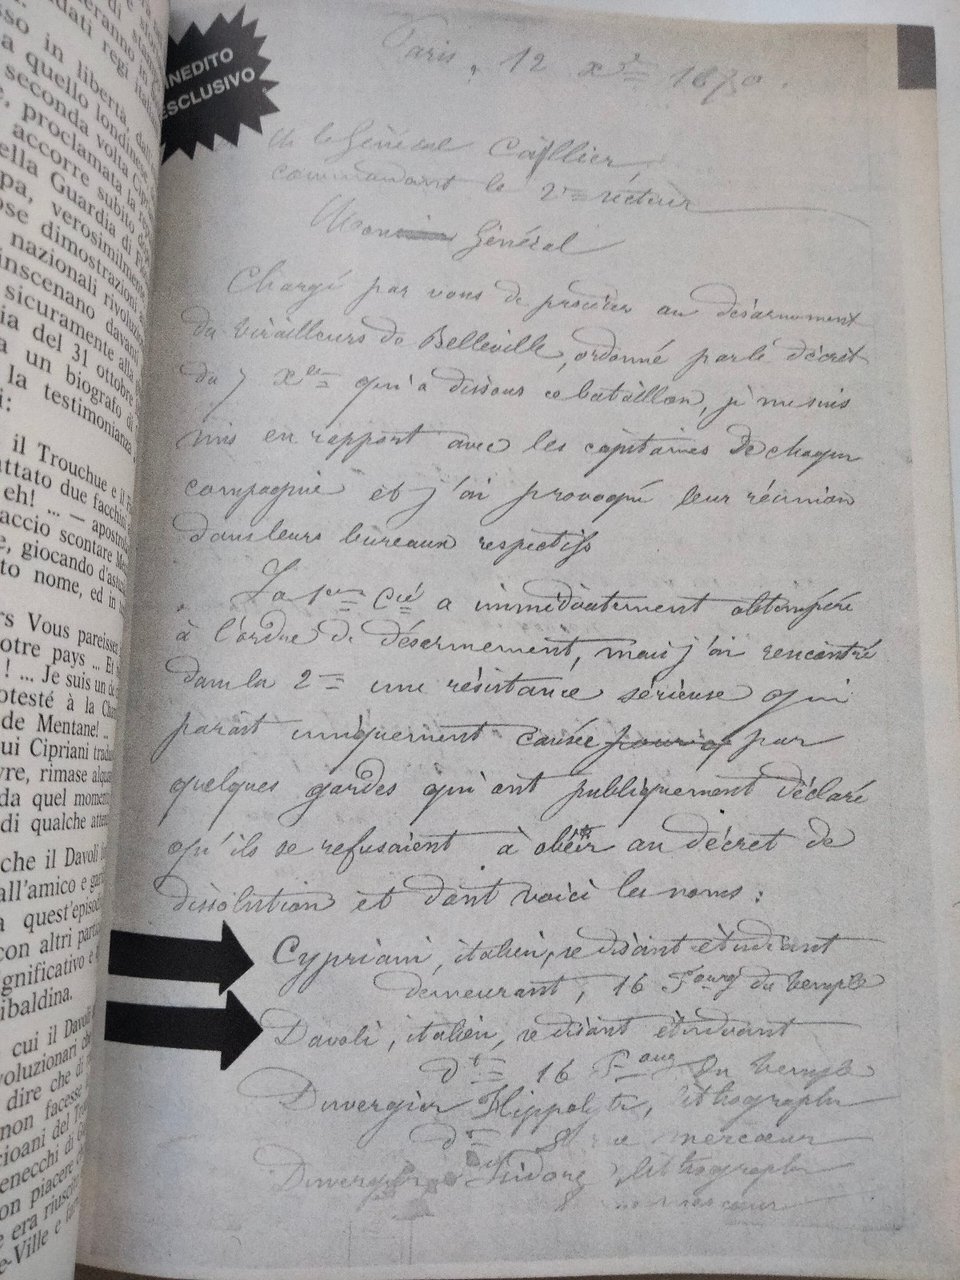 sso in libertà, dat
a quello londinese
seconda volta Cipr
e, proclamata la rep
accorre subito dopo
ella Guardia di
pa, verosimilmente
ose dimostrazioni
nazionali rivoluz
inscenano davanti
sicuramente alla
ia del 31 ottobre
a un biografo di
la testimonianza
i:
il Trouchue e il F
attato due facchini
eh! ... — apostrof
accio scontare Me
e, giocando d'astuz
to nome, ed in
rs Vous pareissez
otre pays ... Et
! ... Je suis un de
otesté à la Cha
de Mentane! ..
ui Cipriani tradu
vre, rimase alqua
da quel momento
di qualche atten
che il Davoli
all'amico e
a quest'episod
con altri part
gnificativo e
ibaldina.
cui il Davoli
voluzionari che
dire che di
non facesse
cioani del Tro
enecchi di
on piacere
e era riuscit
e-Ville e
INEDITO
ESCLUSIVO
Paris, 12 xbre 1870.
M le Général Caillier
commandant le 2e secteur
Mon Général
Chargé par vous de procéder au désarmement
des tirailleurs de Belleville, ordonné par le décret
du 7 Xbre qui a dissous ce bataillon, je me suis
mis en rapport avec les capitaines de chaque
compagnie et j'ai provoqué leur réunion
dans leurs bureaux respectifs
La 1ere Cie a immédiatement obtempéré
à l'ordre de désarmement, mais j'ai rencontré
dans la 2e une résistance sérieuse qui
parait uniquement causée par
quelques gardes qui ont publiquement déclaré
qu'ils se refusaient à obéir au décret de
dissolution et dont voici les noms :
Cypriani, italien, se disant étudiant
demeurant, 16 Faubg du Temple
Davoli, italien, se disant étudiant
do 16 Faubg du Temple
Duvergier Hippolyte, lithographe
do 8 rue mercoeur
Duvergier Isidore, lithographe
8 rue mercoeur